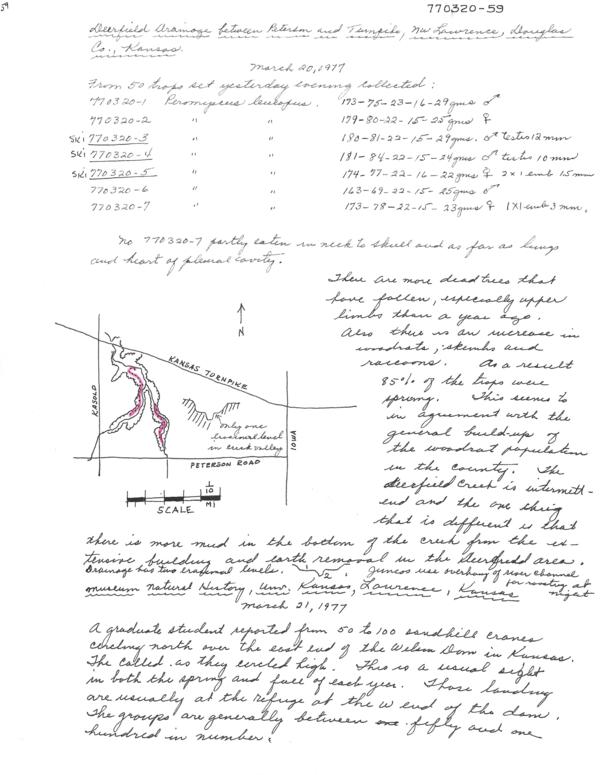 59
770320-59
Deerfield Drainage between Peterson and Turnpike, NW Lawrence, Douglas
Co., Kansas
March 20, 1977
From 50 traps set yesterday evening collected:
770320-1 Peromyscus leucopus. 173-75-23-16-29gms ♂
770320-2 " " 179-80-22-15-25gms ♀
SKi 770320-3 " " 180-81-22-15-29gms. ♂ testes 12 mm
SKi 770320-4 " " 181-84-22-15-24gms ♂ testes 10 mm
SKi 770320-5 " " 174-77-22-16-22gms ♀ 2x1 emb 15mm
770320-6 " " 163-69-22-15-25gms ♂
770320-7 " " 173-78-22-15-23gms ♀ 1x1 emb 3 mm.
No 770320-7 partly eaten in neck to skull and as far as lungs
and heart of pleural cavity.
There are more dead trees that
have fallen, especially upper
limbs than a year ago.
Also there is an increase in
woodrats, skunks and
raccoons. As a result
85% of the traps were
sprung. This seems to
in agreement with the
general build-up of
the woodrat population
in the county. The
Deerfield Creek is intermitt-
end and the one thing
that is different is that
N
KANSAS TURNPIKE
KASOLD
only one
erosional level
in creek valley
IOWA
PETERSON ROAD
1/10
MI
SCALE
there is more mud in the bottom of the creek from the ex-
tensive building and earth removal in the Deerfield area.
Drainage has two erosional levels. 1 2 . Juncos use overhang of river channel
for roosting at
night
Museum Natural History, Univ. Kansas, Lawrence, Kansas
March 21, 1977
A graduate student reported from 50 to 100 sandhill cranes
circling north over the east end of the Dam in Kansas.
The called as they circled high. This is a usual sight
in both the spring and fall of each year. Those landing
are usually at the refuge at the W end of the dam.
The groups are generally between fifty and one
hundred in number.